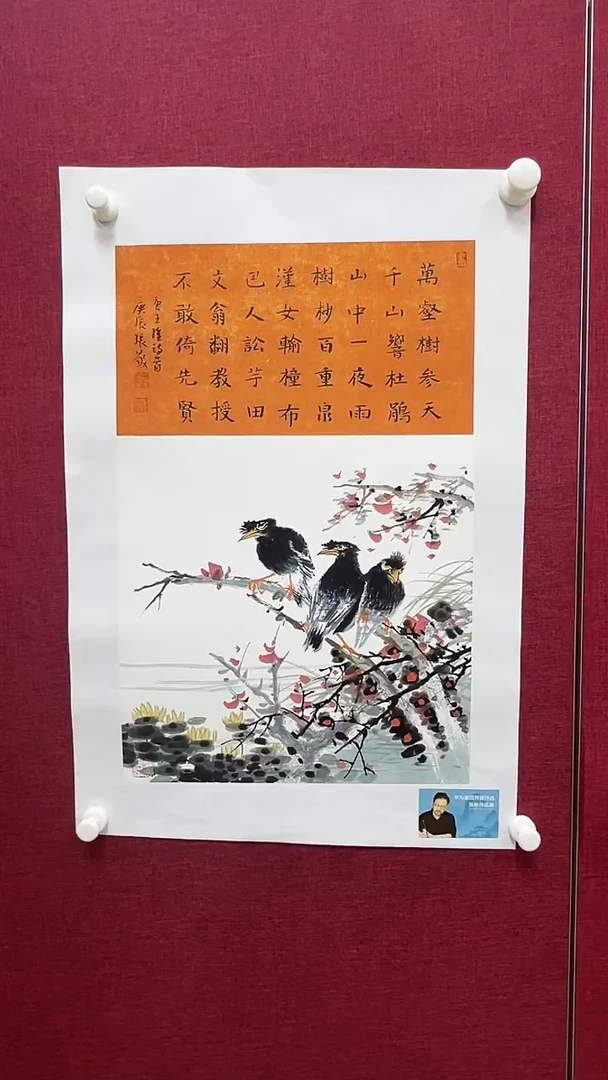 萬壑樹参天
千山響杜鵑
山中一夜雨
樹杪百重泉
漢女輸橦布
巴人訟芋田
文翁翻教授
不敢倚先賢
唐王維詩一首
庚辰張